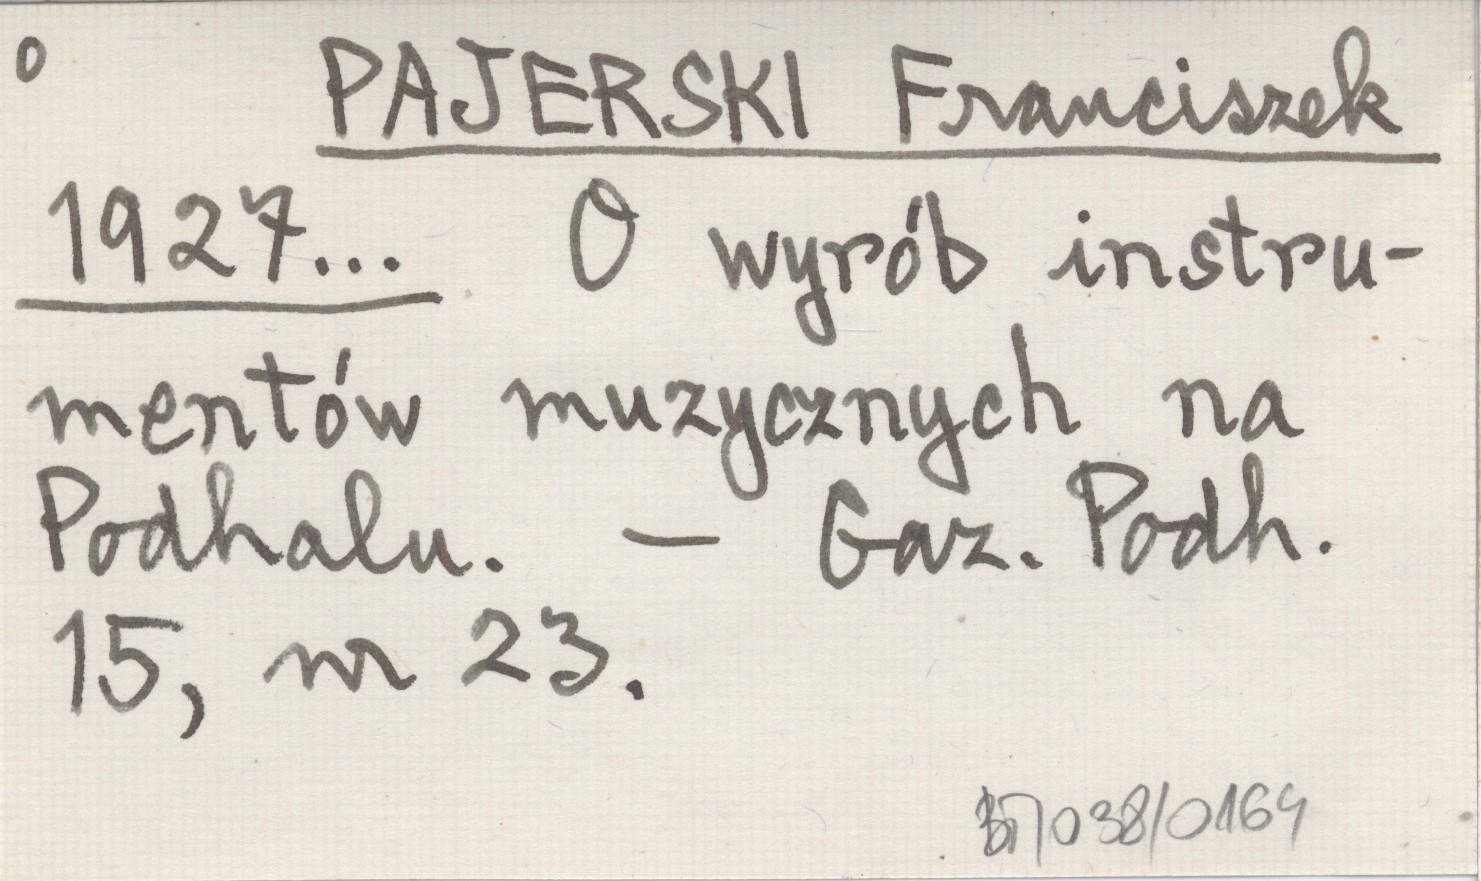 o PAJERSKI Franciszek
1927... O wyrób instru-
mentów muzycznych na
Podhalu. – Gaz. Podh.
15, nr 23.
038/0164